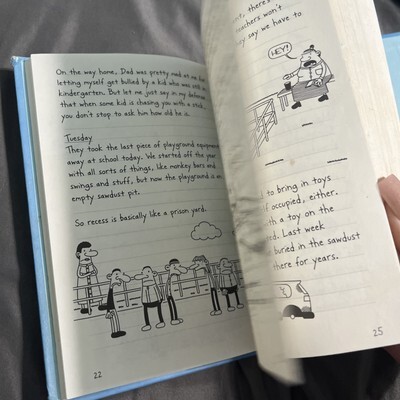 On the way home, Dad was pretty mad at me for
letting myself get bullied by a kid who was still in
kindergarten. But let me just say in my defense
that when some kid is chasing you with a stick,
you don't stop to ask him how old he is.
Tuesday
They took the last piece of playground equipment
away at school today. We started off the year
with all sorts of things, like monkey bars and
swings and stuff, but now the playground is an
empty sawdust pit.
So recess is basically like a prison yard.
22
there's
teachers won't
say we have to
HEY!
to bring in toys
f occupied, either.
th a toy on the
Last week
buried in the sawdust
there for years.
25